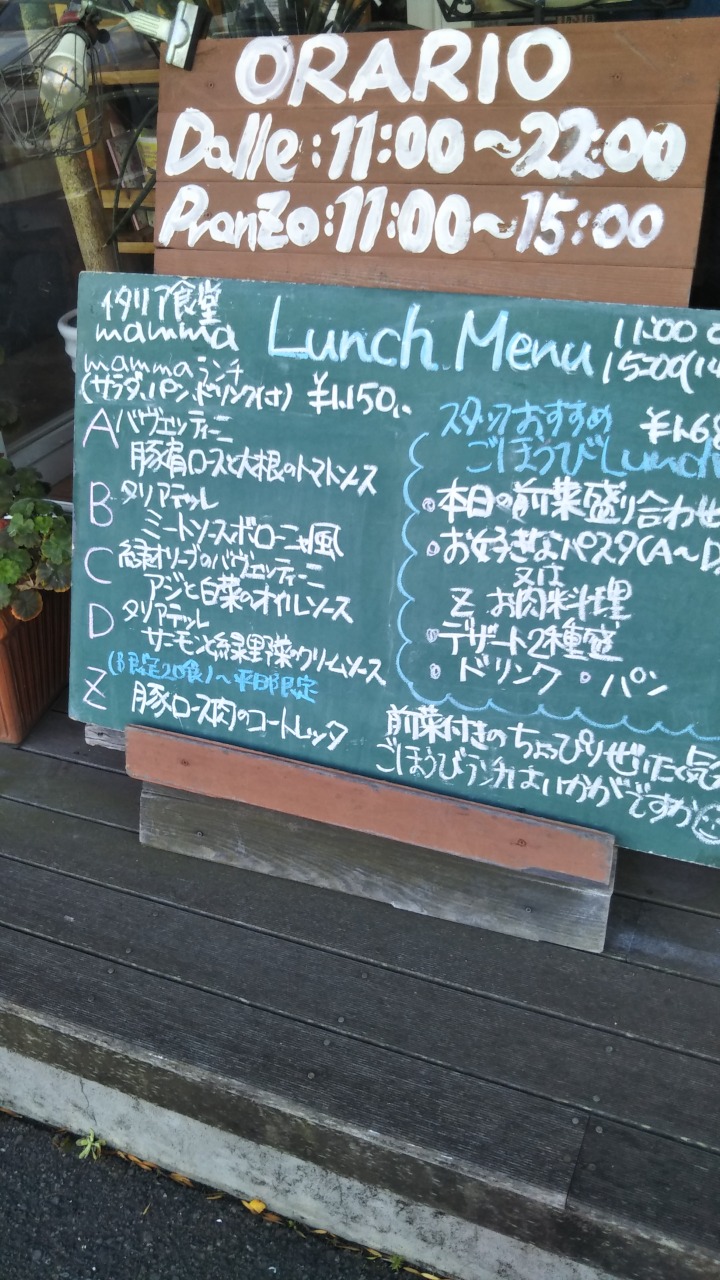 ORARIO
Dalle:11:00～22:00
Pranzo:11:00～15:00
イタリア食堂
mamma
Lunch Menu
11:00
15:00(14
mammaランチ
(サラダ,パン,ドリンク付) ¥1,150,-
A パヴェッティーニ
豚肩ロースと大根のトマトソース
B タリアテッレ
ミートソースボローニャ風
C 緑オリーブのバヴェッティーニ
アジと白菜のオイルソース
D タリアテッレ
サーモンと緑野菜のクリームソース
(限定20食)～平日限定
Z 豚ロース肉のコートレッタ
スタッフおすすめ ¥1,6
ごほうびLunch
・本日の前菜盛り合わせ
・お好きなパスタ(A～D
又は
Z お肉料理
・デザート2種盛
・ドリンク ・パン
前菜付きのちょっぴりぜいたく気
ごほうびランチはいかがですか